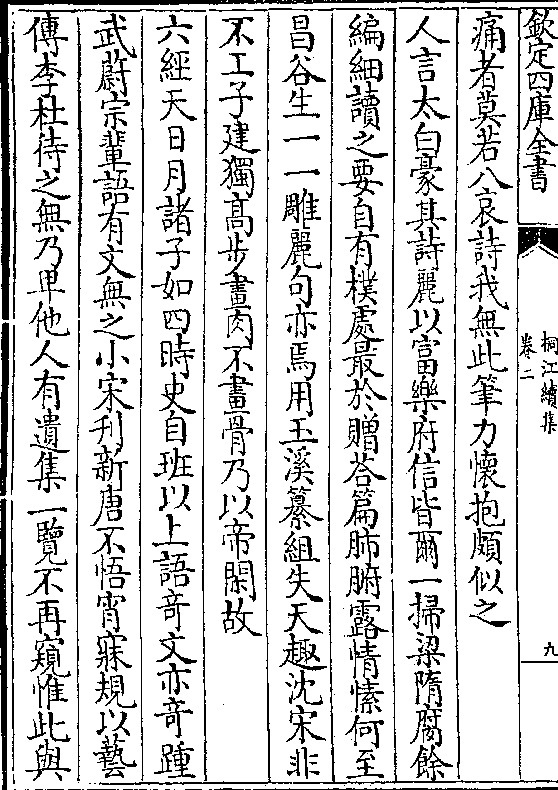 欽定四庫全書
桐江續集
卷二
九
痛者莫若八哀詩我無此筆力懷抱頗似之
人言太白豪其詩麗以富樂府信皆爾一掃梁隋腐餘
編細讀之要自有樸處最於贈荅篇肺腑露情愫何至
昌谷生一一雕麗句亦焉用玉溪纂組失天趣沈宋非
不工子建獨髙步畫肉不畫骨乃以帝閑故
六經天日月諸子如四時史自班以上語竒文亦竒踵
武蔚宗輩語有文無之小宋刋新唐不悟宵寐規以藝
傳李杜待之無乃卑他人有遺集一覽不再窺惟此與